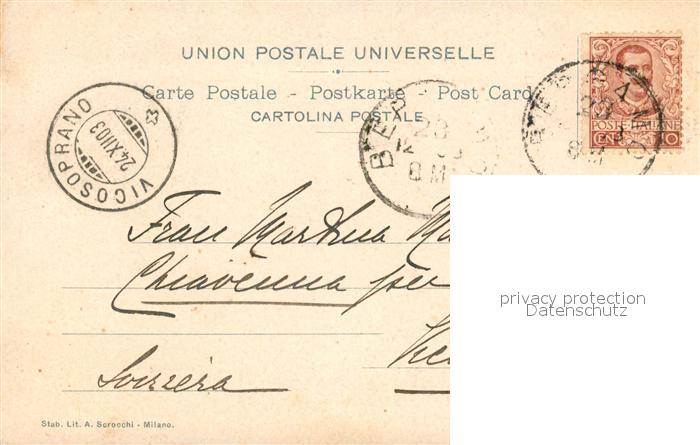 UNION POSTALE UNIVERSELLE
Carte Postale - Postkarte - Post Card
CARTOLINA POSTALE
VICOSOPRANO
24.XII.03
BERGAMO
23
12
8 M
BERGAMO
23
8 M
POSTE ITALIANE
CENT. 10
Frau Martha
Chiavenna per
Svizzera
privacy protection
Datenschutz
Stab. Lit. A. Scrocchi - Milano.